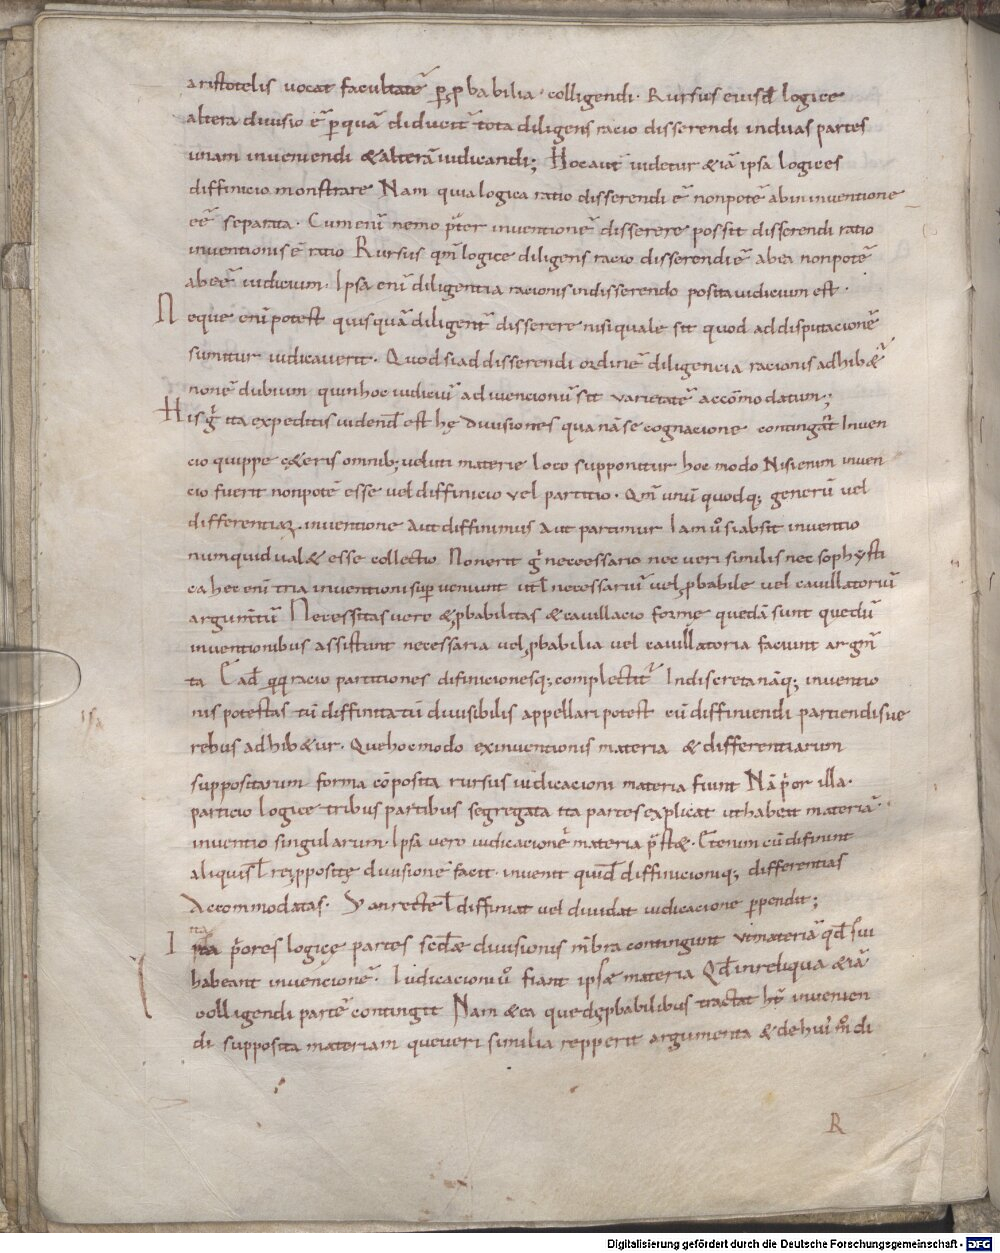 aristotelis uocat facultatē ꝑ ꝓbabilia · colligendi · Rursus eiusđ logice
altera diuisio ē ꝑ quā diducit̄ tota diligens racio disserendi in duas partes
unam inueniendi & alterā iudicandi; Hoc aut̄ uidetur & iā ipsa logices
diffinicio monstrare Nam quia logica ratio disserendi ē non potē ab inuentione
eē separata · Cum enī nemo p̄ter inuentionē disserere possit disserendi ratio
inuentionis ē ratio Rursus qm̄ logice diligens racio disserendi ē ab ea non potē
abeē iudicium · Ipsa enī diligentia racionis in disserendo posita iudicium est ·
Neque enī potest quisquā diligent̄ disserere nisi quale sit quod ad disputacionē
sumitur iudicauerit · Quod si ad disserendi ordinē diligencia racionis adhib&̄
non ē dubium quin hoc iudiciū ad inuencionū sit uarietatē accōmodatum;
His g̊ ita expeditis uidenđ est hę diuisiones qua n̄a se cognacione contingāt Inuen
cio quippe c&eris omnib; ueluti materie loco supponitur hoc modo Nisi enim inuen
cio fuerit non potē esse uel diffinicio uel partitio · Qm̄ unū quodq; generū uel
differentiaꝝ · inuentione aut diffinimus aut partimur Iam ů si absit inuentio
numquid ual& esse collectio Non erit g̊ necoessario nec ueri similis nec sophysti
ca hec enī tria inuentioni suꝑueniunt ut ł necessariū uel ꝓbabile uel cauillatoriū
argum̄tū Necessitas uero & ꝓbabilitas & cauillacio formę quedā sunt que dū
inuentionibus assistunt necessaria uel ꝓbabilia uel cauillatoria faciunt argm̄
ta racio partitiones difinicionesq; complectit̄ Indiscreta nāq; inuentio
nis potestas tū diffinita tū diuisibilis appellari potest cū diffiniendi partiendisue
rebus adhib&ur · Que hoc modo ex inuentionis materia & differentiarum
suppositarum forma cōposita rursus iudicacioni materia fiunt Nā p̄or illa ·
particio logice tribus partibus segregata ita partes explicat ut habeat materiā
inuentio singularum · Ipsa uero iudicacionē materia p̄st& · &enum cū difiniunt
aliquis ł rei ꝓpositę diuisionē facit · inuenit quiđ diffinicioniq; differentias
Accommodatas · U an recte ł diffiniat uel diuidat iudicacione ꝑpendit;
ita
Ipsa p̄ores logicę partes secđæ diuisionis m̄bra contingunt ut materiā qđ sui
habeant inuencionē · Iudicacioni ů fiant ipsæ materia Qđ in reliqua & iā
colligendi partē contingit Nam & ea que de ꝓbabilibus tractat h̄t inuenien
di supposita materiam que ueri similia repperit argumenta & de hui' m̊di
R
Digitalisierung gefördert durch die Deutsche Forschungsgemeinschaft - DFG